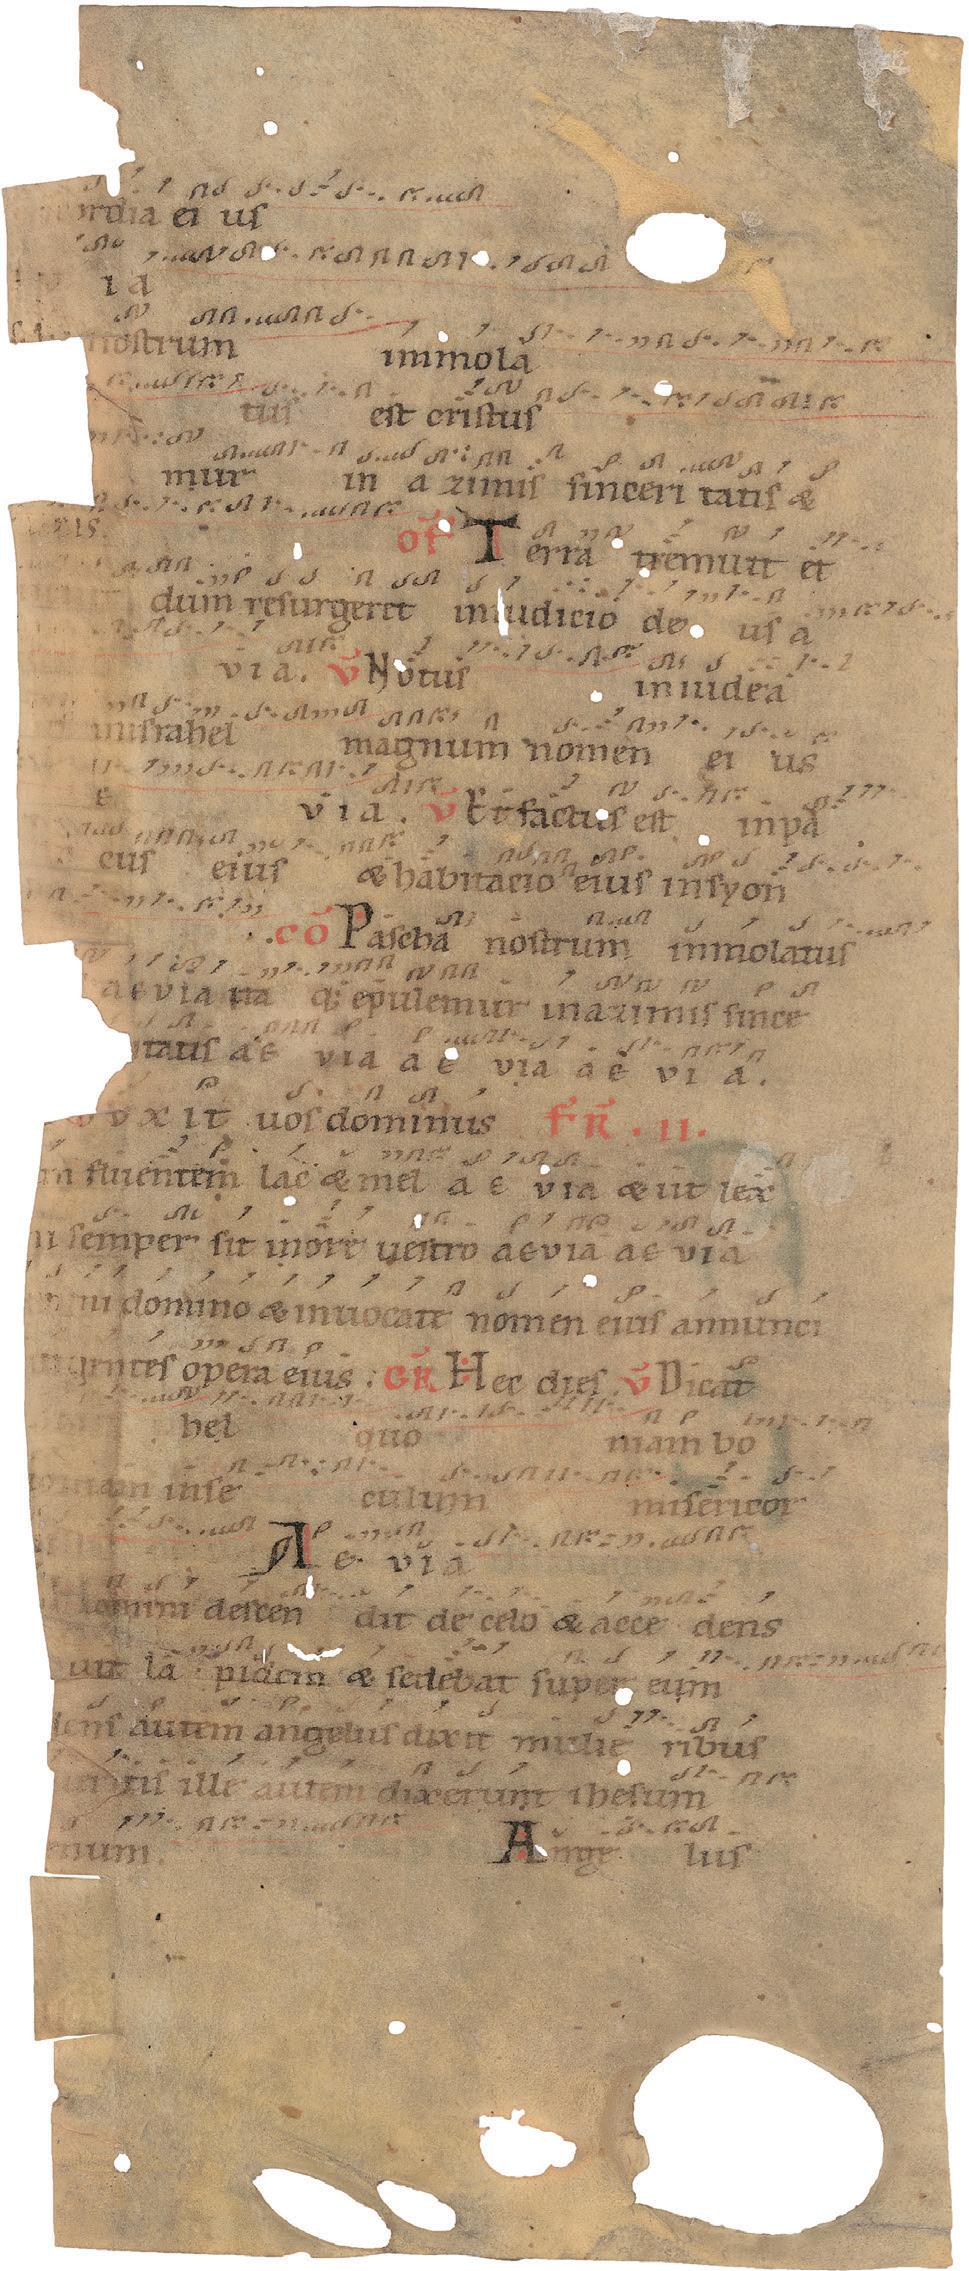 ordia ei us
ia
nostrum immola
tus est cristus
mur in a zimis sinceri tatis &
ris. OF Terra tremuit et
dum resurgeret in iudicio de us a
via. V Notus in iudea
inisrahel magnum nomen ei us
e via. V Et factus est in pa
cus eius & habitacio eius in syon
CO Pascha nostrum immolatus
aevia ita q; epulemur in azimis since
itatis ae via ae via ae vi a.
DVXIT uos dominus FR. II.
m fluentem lac & mel ae via & ut lex
ni semper sit in ore uestro aevia ae via
mini domino & inuocate nomen eius annunci
gentes opera eius: GR Hec dies. V Dicat
hel quo niam bo
oniam in se culum misericor
Ae via
omini descen dit de celo & acce dens
uit la pidem & sedebat super eum
dens autem angelus dixit mulie ribus
ritis ille autem dixerunt ihesum
enum. Ange lus